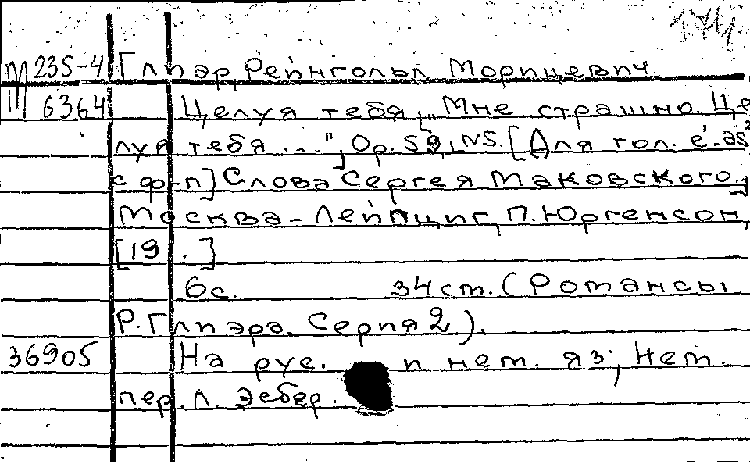 Ш 235-4 Глиэр, Рейнгольд Морицевич
6364 Целуя тебя „Мне страшно. Це
луя тебя ...", Op. 59, N5. [Для гол. e'-as²
с ф-п] Слова Сергея Маковского.
Москва - Лейпциг, П. Юргенсон,
[19 . ]
6с. 34 ст. (Романсы
Р. Глиэра. Серия 2).
36905 На рус. и нем. яз; Нем.
пер. Л. Эсбер.